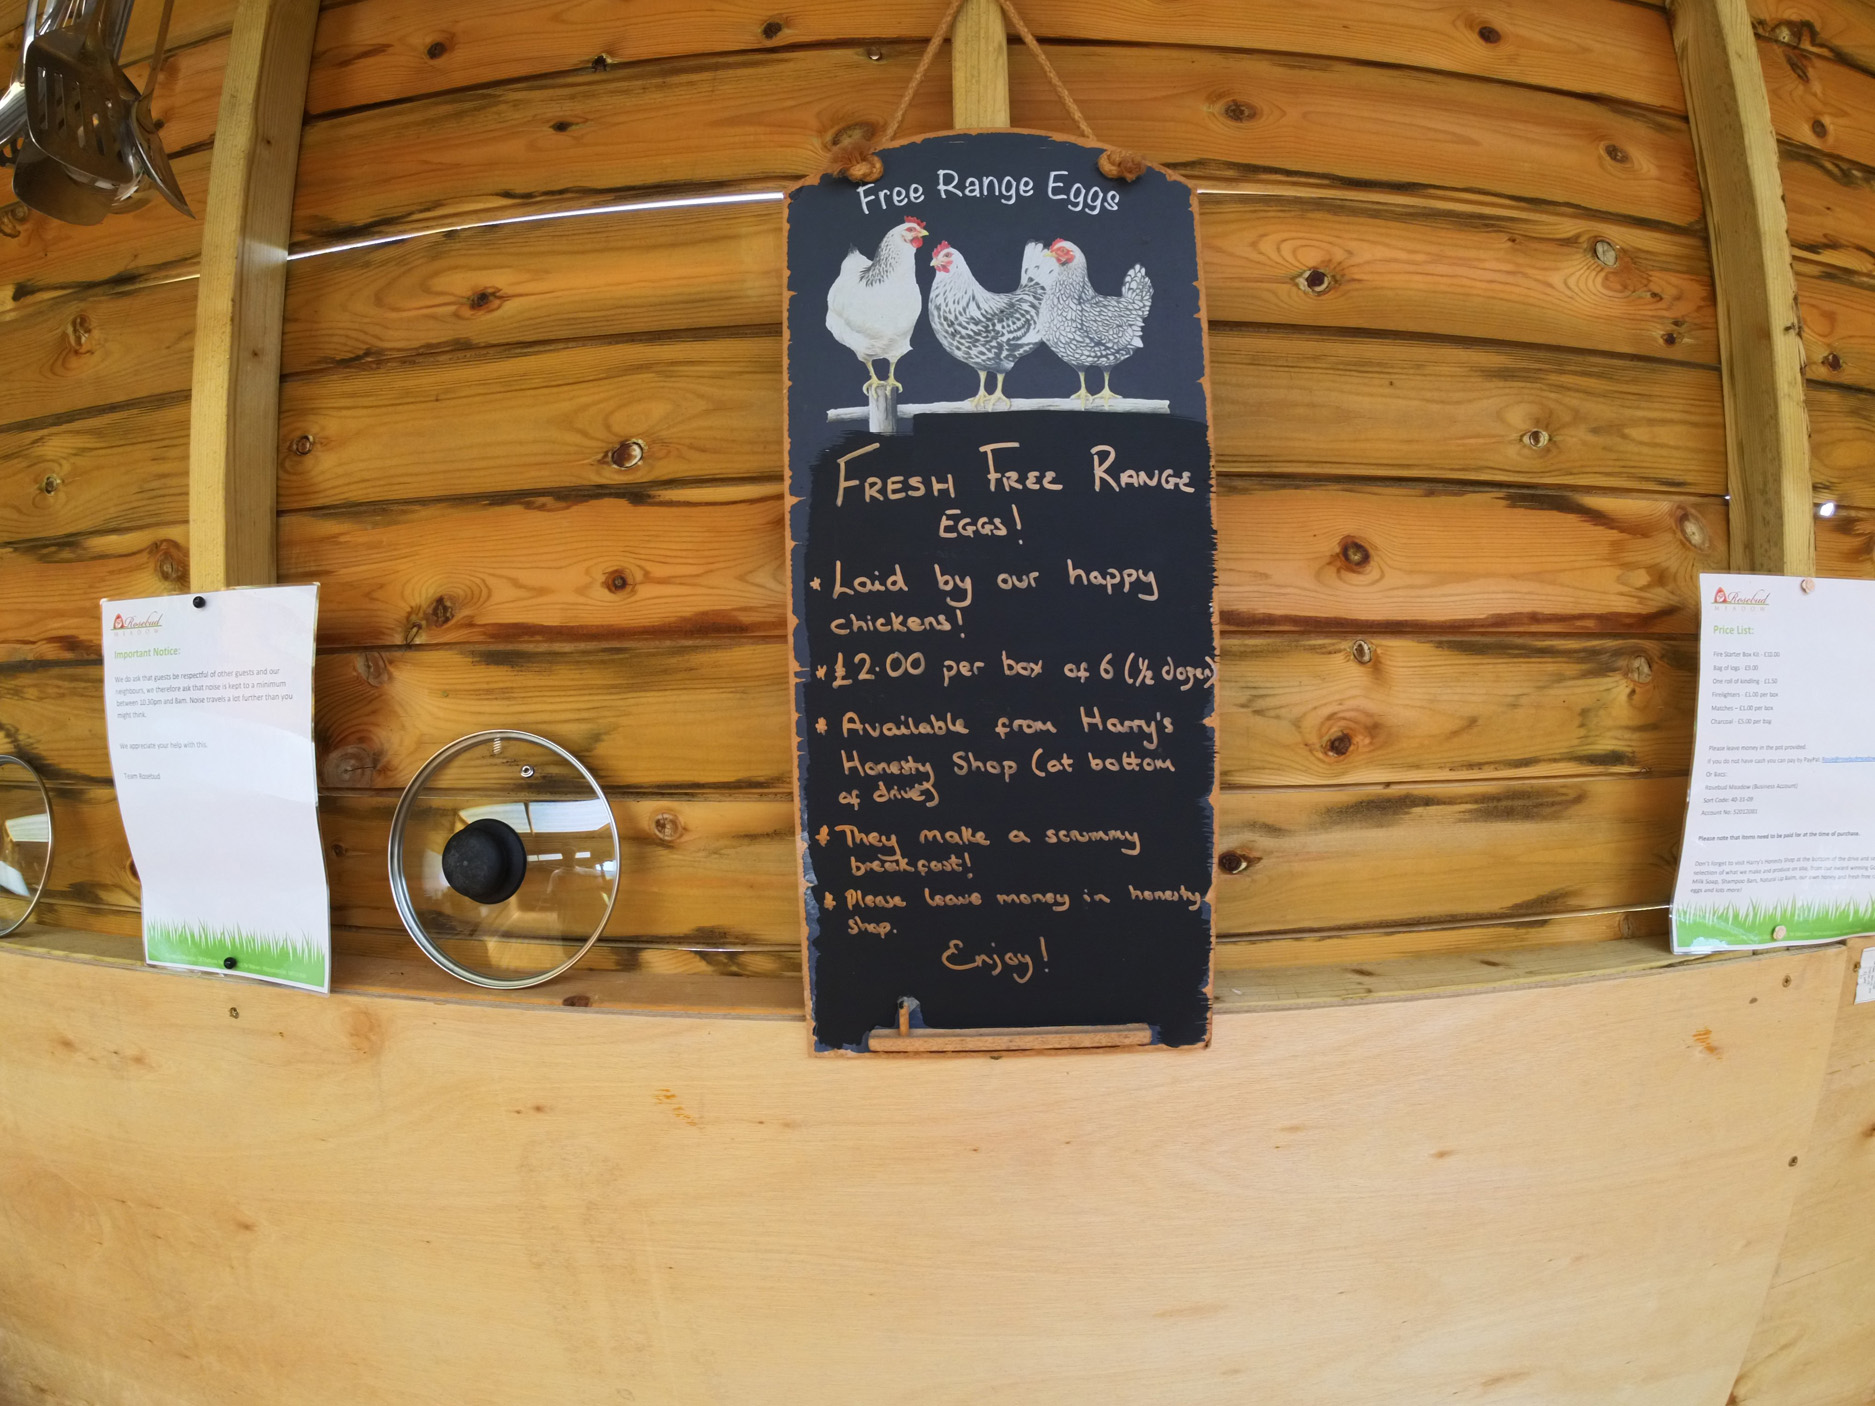 Rosebud
MEADOW
Important Notice:
We do ask that guests be respectful of other guests and our
neighbours, we therefore ask that noise is kept to a minimum
between 10.30pm and 8am. Noise travels a lot further than you
might think.
We appreciate your help with this.
Team Rosebud
Free Range Eggs
FRESH FREE RANGE
EGGS!
* Laid by our happy
chickens!
* £2.00 per box of 6 (½ dozen)
* Available from Harry's
Honesty Shop (at bottom
of drive)
* They make a scrummy
breakfast!
* Please leave money in honesty
shop.
Enjoy!
Rosebud
MEADOW
Price List:
Fire Starter Box Kit - £10.00
Bag of logs - £5.00
One roll of kindling - £1.50
Firelighters - £1.00 per box
Matches – £1.00 per box
Charcoal - £5.00 per bag
Please leave money in the pot provided.
If you do not have cash you can pay by PayPal:
Or Bacs:
Rosebud Meadow (Business Account)
Sort Code: 40-33-09
Account No:
Please note that items need to be paid for at the time of purchase.
Don't forget to visit Harry's Honesty Shop at the bottom of the drive and
selection of what we make and produce on site, from our award winning
Milk Soap, Shampoo Bars, Natural Lip Balm, our own honey and fresh free
eggs and lots more!